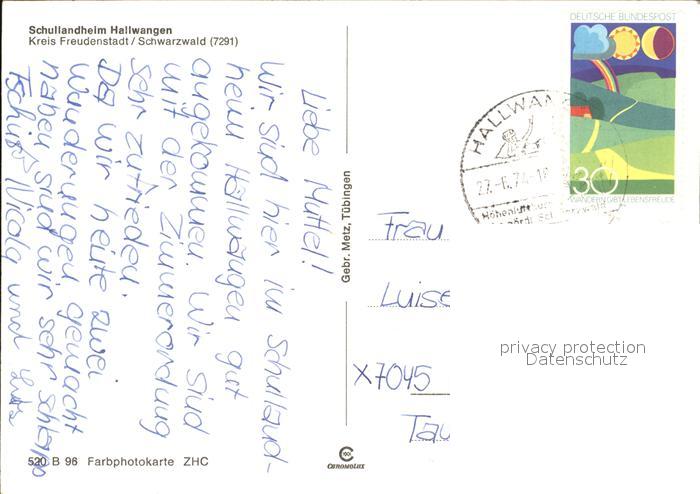 Schullandheim Hallwangen
Kreis Freudenstadt / Schwarzwald (7291)
Liebe Muttel!
Wir sind hier im Schulland-
heim Hallwangen gut
angekommen. Wir sind
mit der Zimmerordnung
sehr zufrieden.
Da wir heute zwei
Wanderungen gemacht
haben sind wir sehr schlapp
Tschüß Nicola und
520 B 96 Farbphotokarte ZHC
Gebr. Metz, Tübingen
CHROMOLUX
DEUTSCHE BUNDESPOST
30
WANDERN GIBT LEBENSFREUDE
HALLWANG
27.-6.74-18
Höhenluftkur
Schwarzwald
Frau
Luise
X7045
Tau
privacy protection
Datenschutz